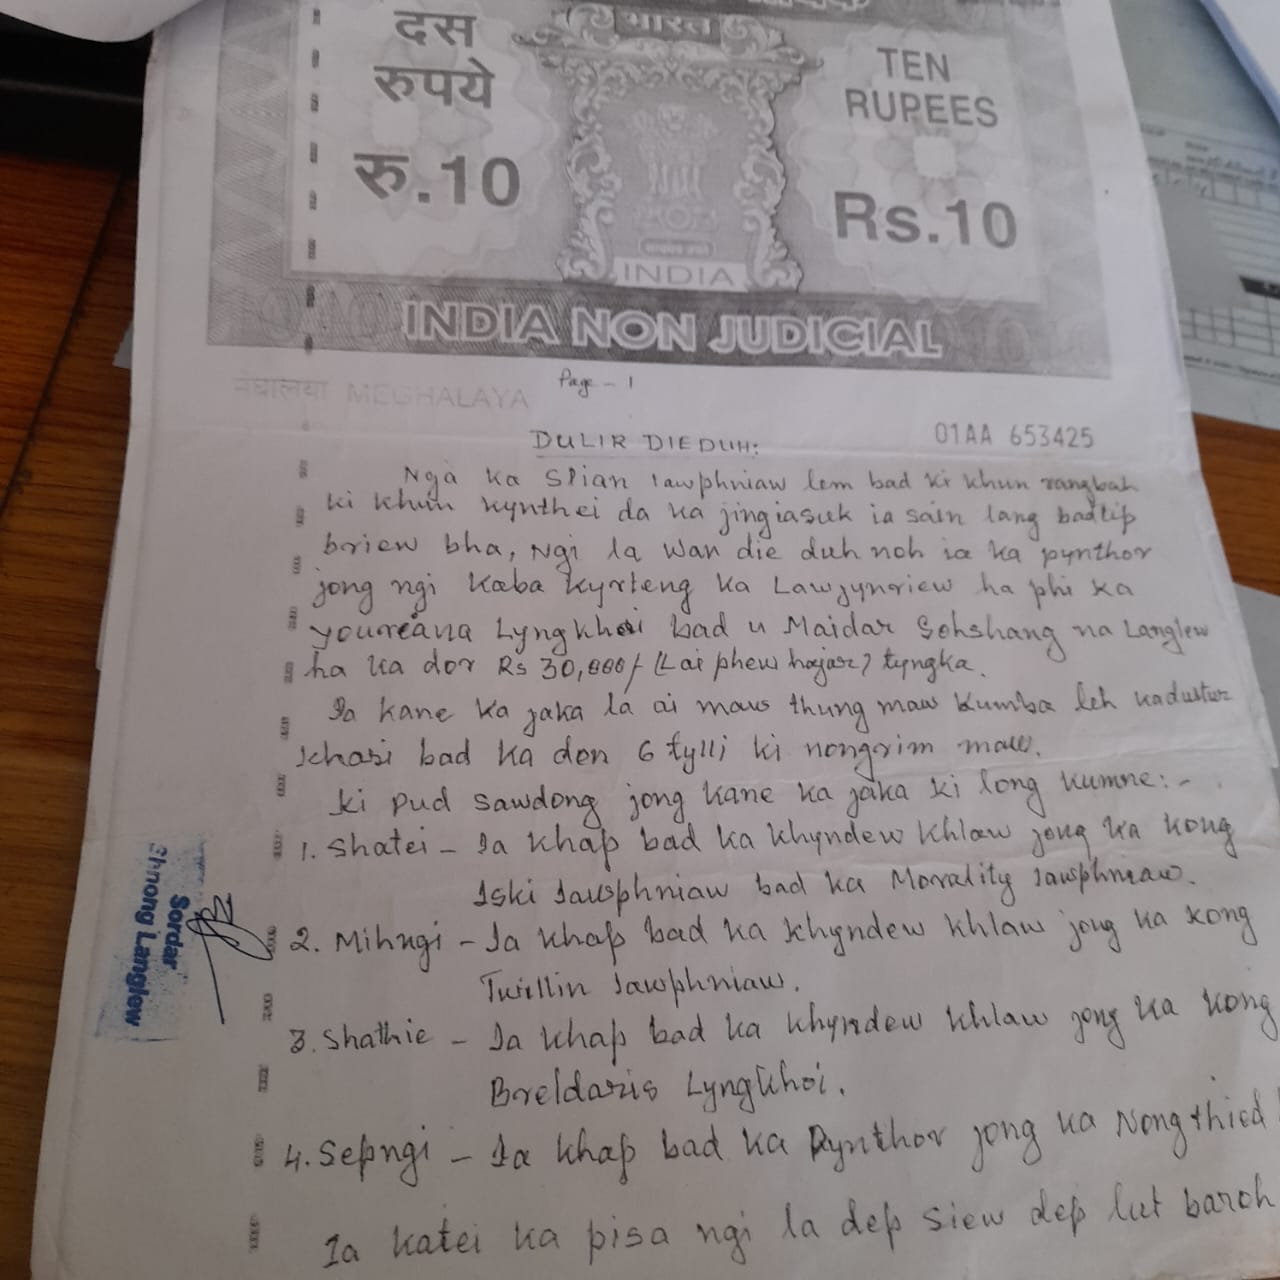 दस
रुपये
रु.10
भारत
TEN
RUPEES
Rs.10
INDIA
INDIA NON JUDICIAL
मेघालया MEGHALAYA
Page - 1
01AA 653425
DULIR DIEDUH:
Nga ka Spian Iawphniaw lem bad ki khun rangbah
ki khun kynthei da ka jingiasuk ia sain lang badtip
briew bha, Ngi la wan die duh noh ia ka pynthor
jong ngi kaba kyrteng ka Lawjynriew ha phi ka
youreana Lyngkhoi bad u Maidar Sohshang na Langlew
ha ka dor Rs 30,000/- (Lai phew hajar) tyngka.
Ia kane ka jaka la ai maw thung maw kumba leh kadustur
Khasi bad ka don 6 tylli ki nongrim maw.
Ki pud sawdong jong kane ka jaka ki long kumne:-
1. Shatei - Ia khap bad ka khyndew khlaw jong ka kong
Iski Iawphniaw bad ka Morality Iawphniaw.
2. Mihngi - Ia khap bad ka khyndew khlaw jong ka kong
Twillin Iawphniaw.
3. Shathie - Ia khap bad ka khyndew khlaw jong ka kong
Breldaris Lyngkhoi.
4. Sepngi - Ia khap bad ka Pynthor jong ka Nongthied
Ia katei ka pisa ngi la dep siew dep lut baroh
Sordar
Shnong Langlew